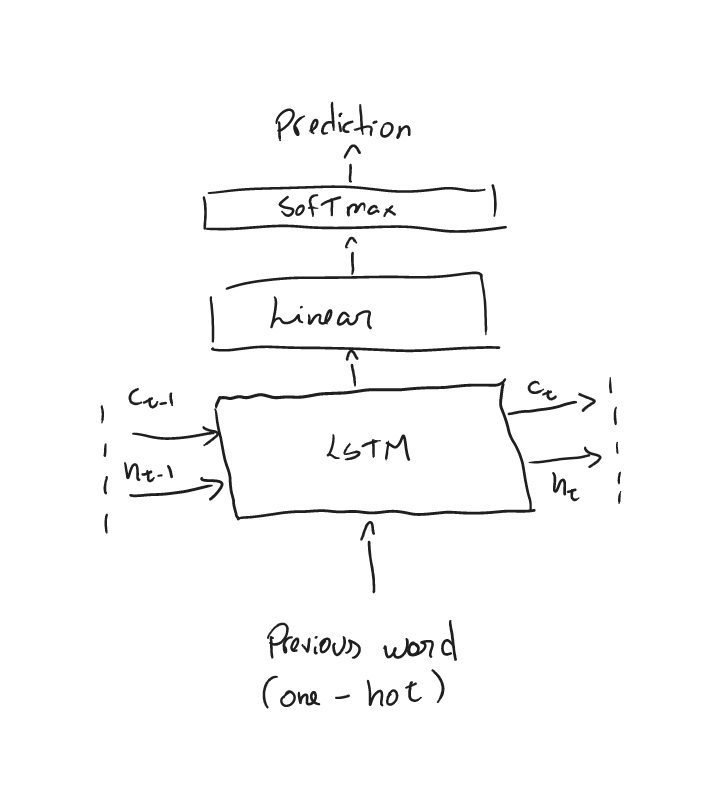 Prediction
Softmax
Linear
C_t-1
C_t
LSTM
h_t-1
h_t
Previous word
(one-hot)